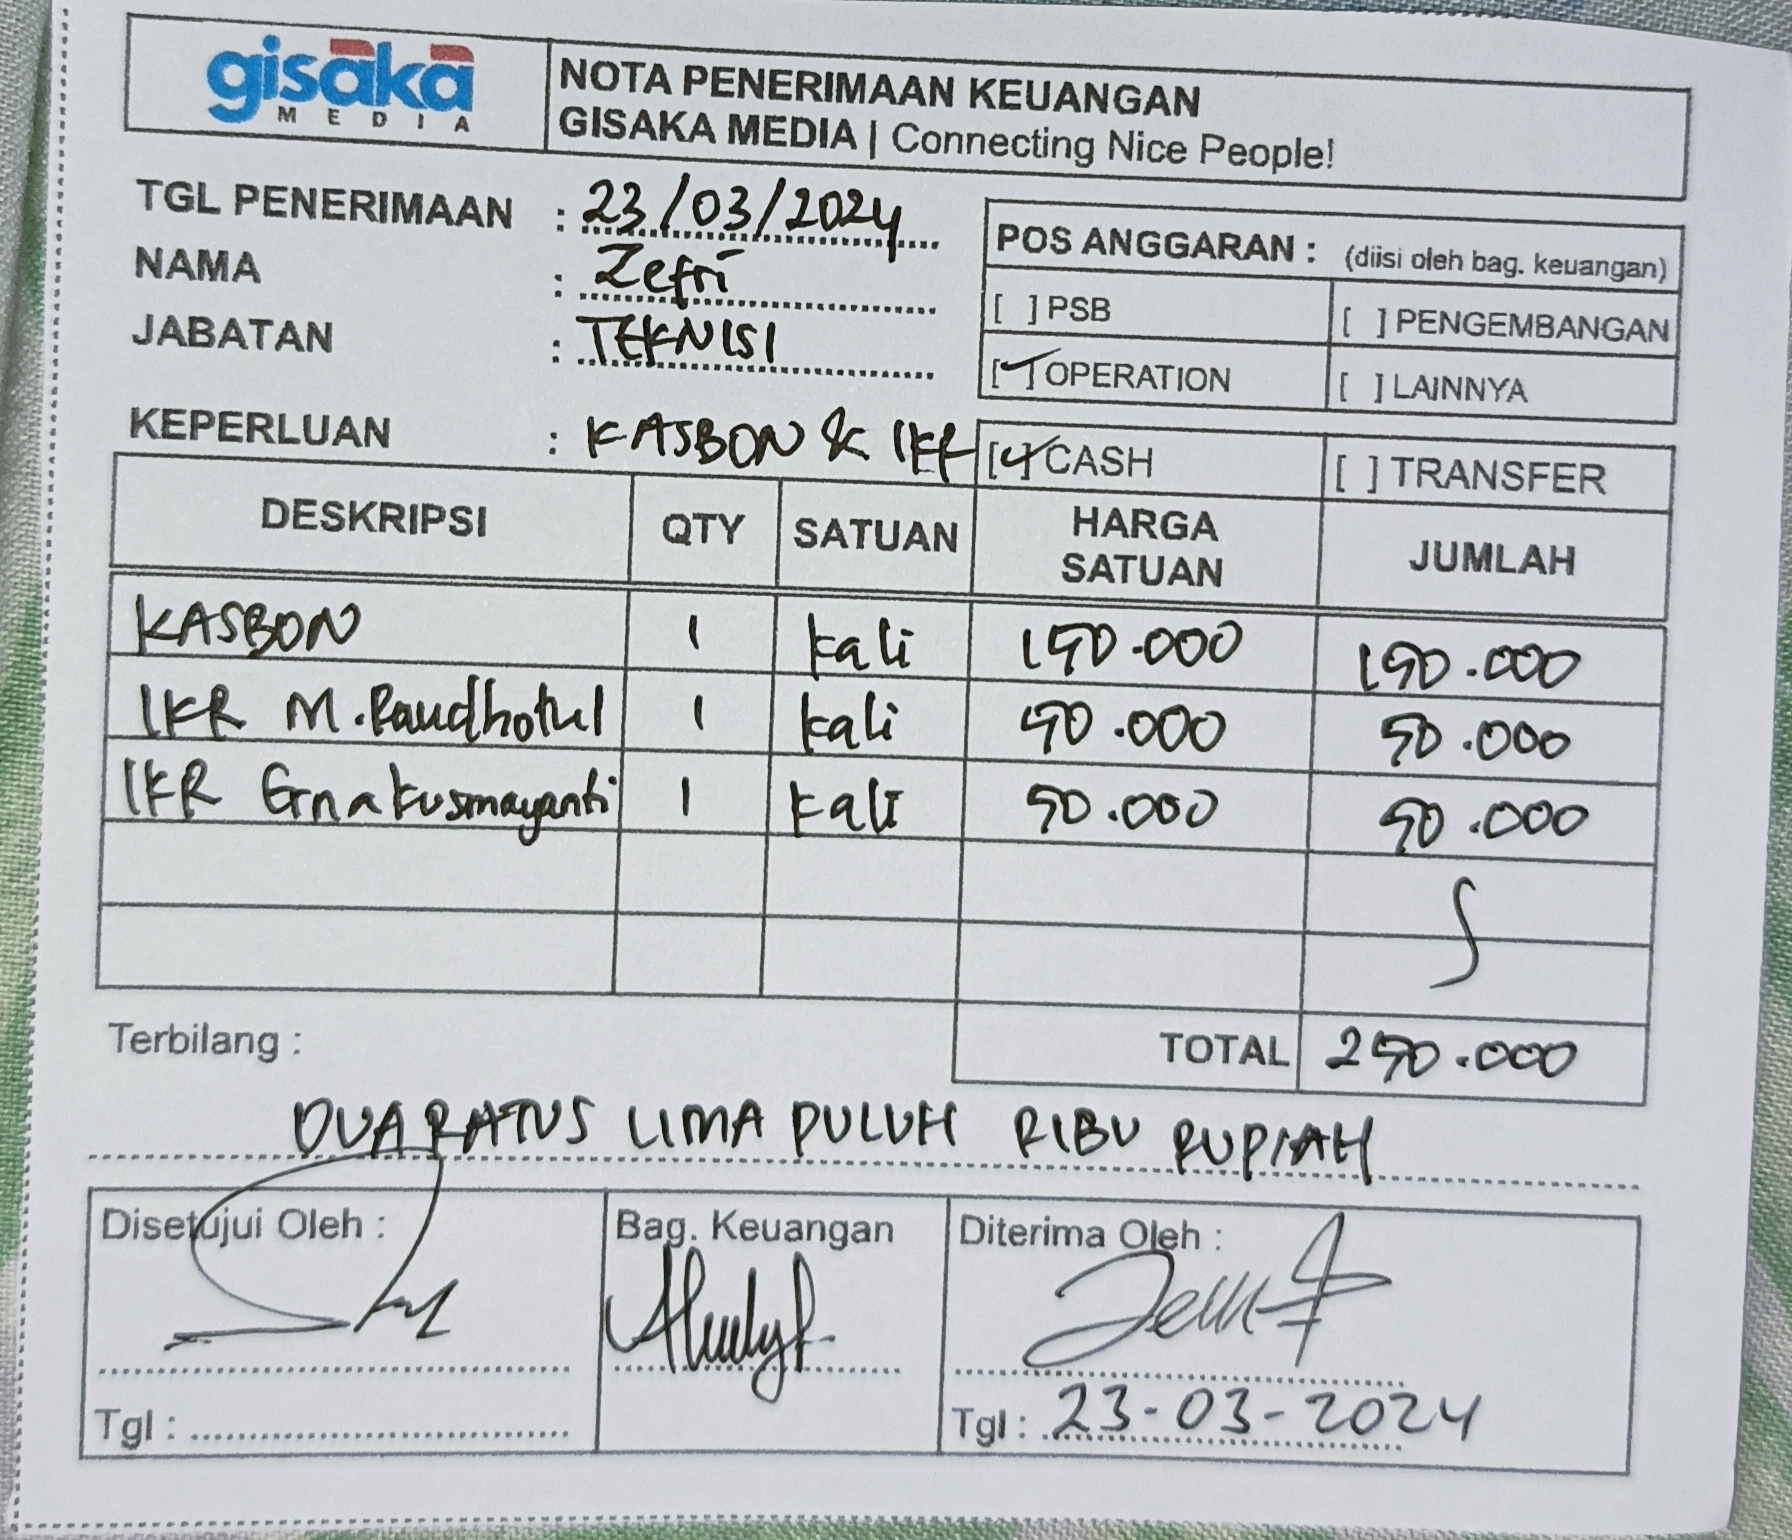 gisaka
MEDIA
NOTA PENERIMAAN KEUANGAN
GISAKA MEDIA | Connecting Nice People!
TGL PENERIMAAN : 23/03/2024
NAMA : Zefri
JABATAN : TEKNISI
POS ANGGARAN : (diisi oleh bag. keuangan)
[ ] PSB [ ] PENGEMBANGAN
[✓] OPERATION [ ] LAINNYA
KEPERLUAN : KASBON & IKR [✓] CASH [ ] TRANSFER
DESKRIPSI QTY SATUAN HARGA SATUAN JUMLAH
KASBON 1 kali 150.000 150.000
IKR M. Raudhotul 1 kali 50.000 50.000
IKR Erna Kusmayanti 1 kali 50.000 50.000
TOTAL 250.000
Terbilang :
DUA RATUS LIMA PULUH RIBU RUPIAH
Disetujui Oleh : Bag. Keuangan Diterima Oleh :
Tgl : Tgl : 23-03-2024